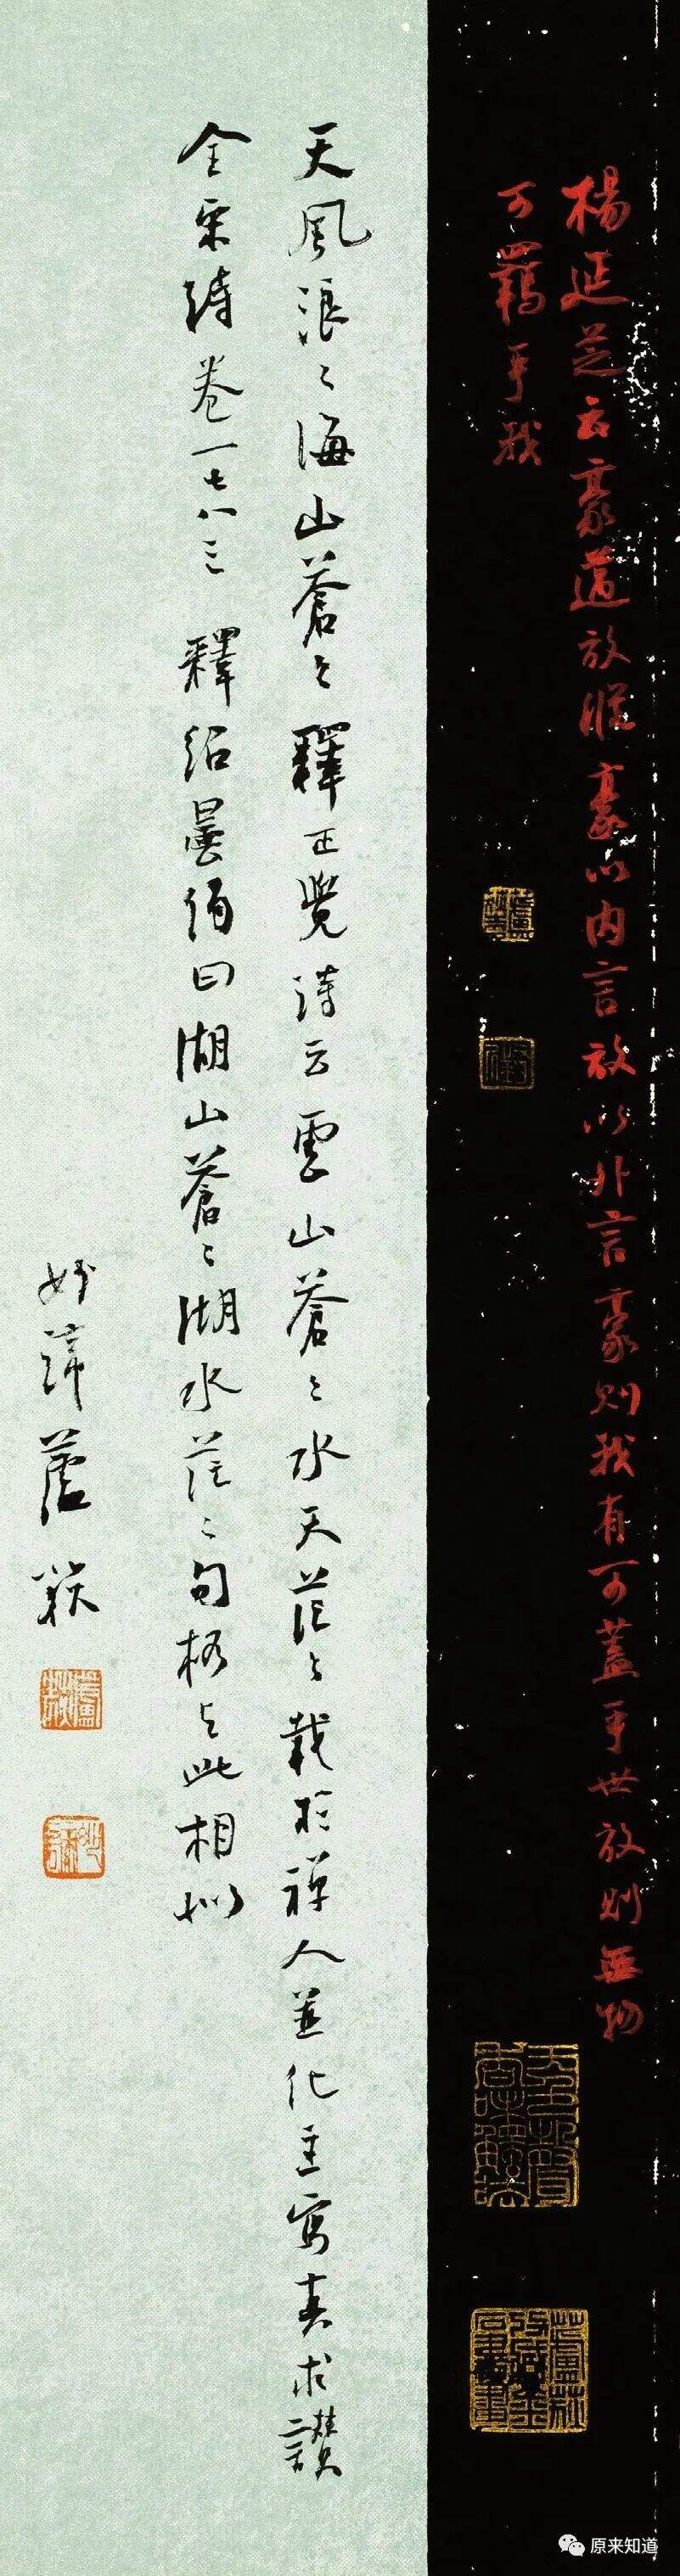 楊廷芝云豪邁放縱豪以内言放以外言豪則我有可蓋乎世放則無物
可羈乎我
天風浪〻海山蒼〻釋正覺詩云雲山蒼〻水天茫〻載於禪人並化主寫真求讚
全宋詩卷一七八三 釋紹曇偈曰湖山蒼〻湖水茫〻句格与此相似
妙諦蘆
原来知道